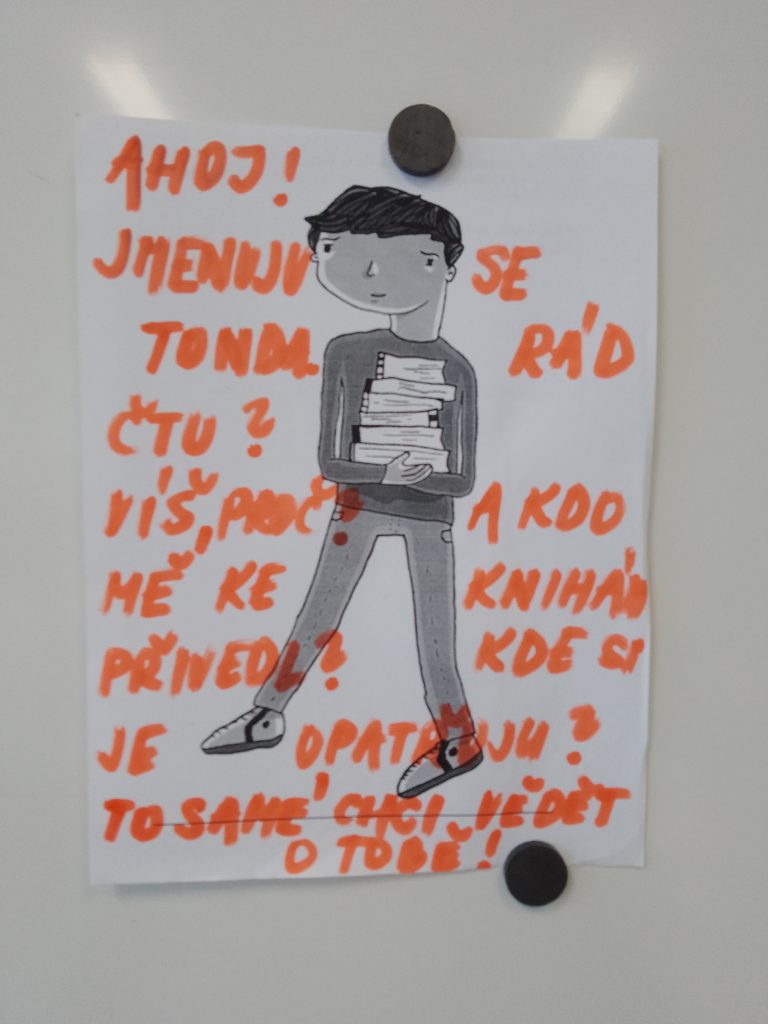 AHOJ!
JMENUJU SE
TONDA. RÁD
ČTU?
VÍŠ, PROČ? A KDO
MĚ KE KNIHÁM
PŘIVEDL? KDE SI
JE OPATŘUJU?
TO SAMÉ CHCI VĚDĚT
O TOBĚ!